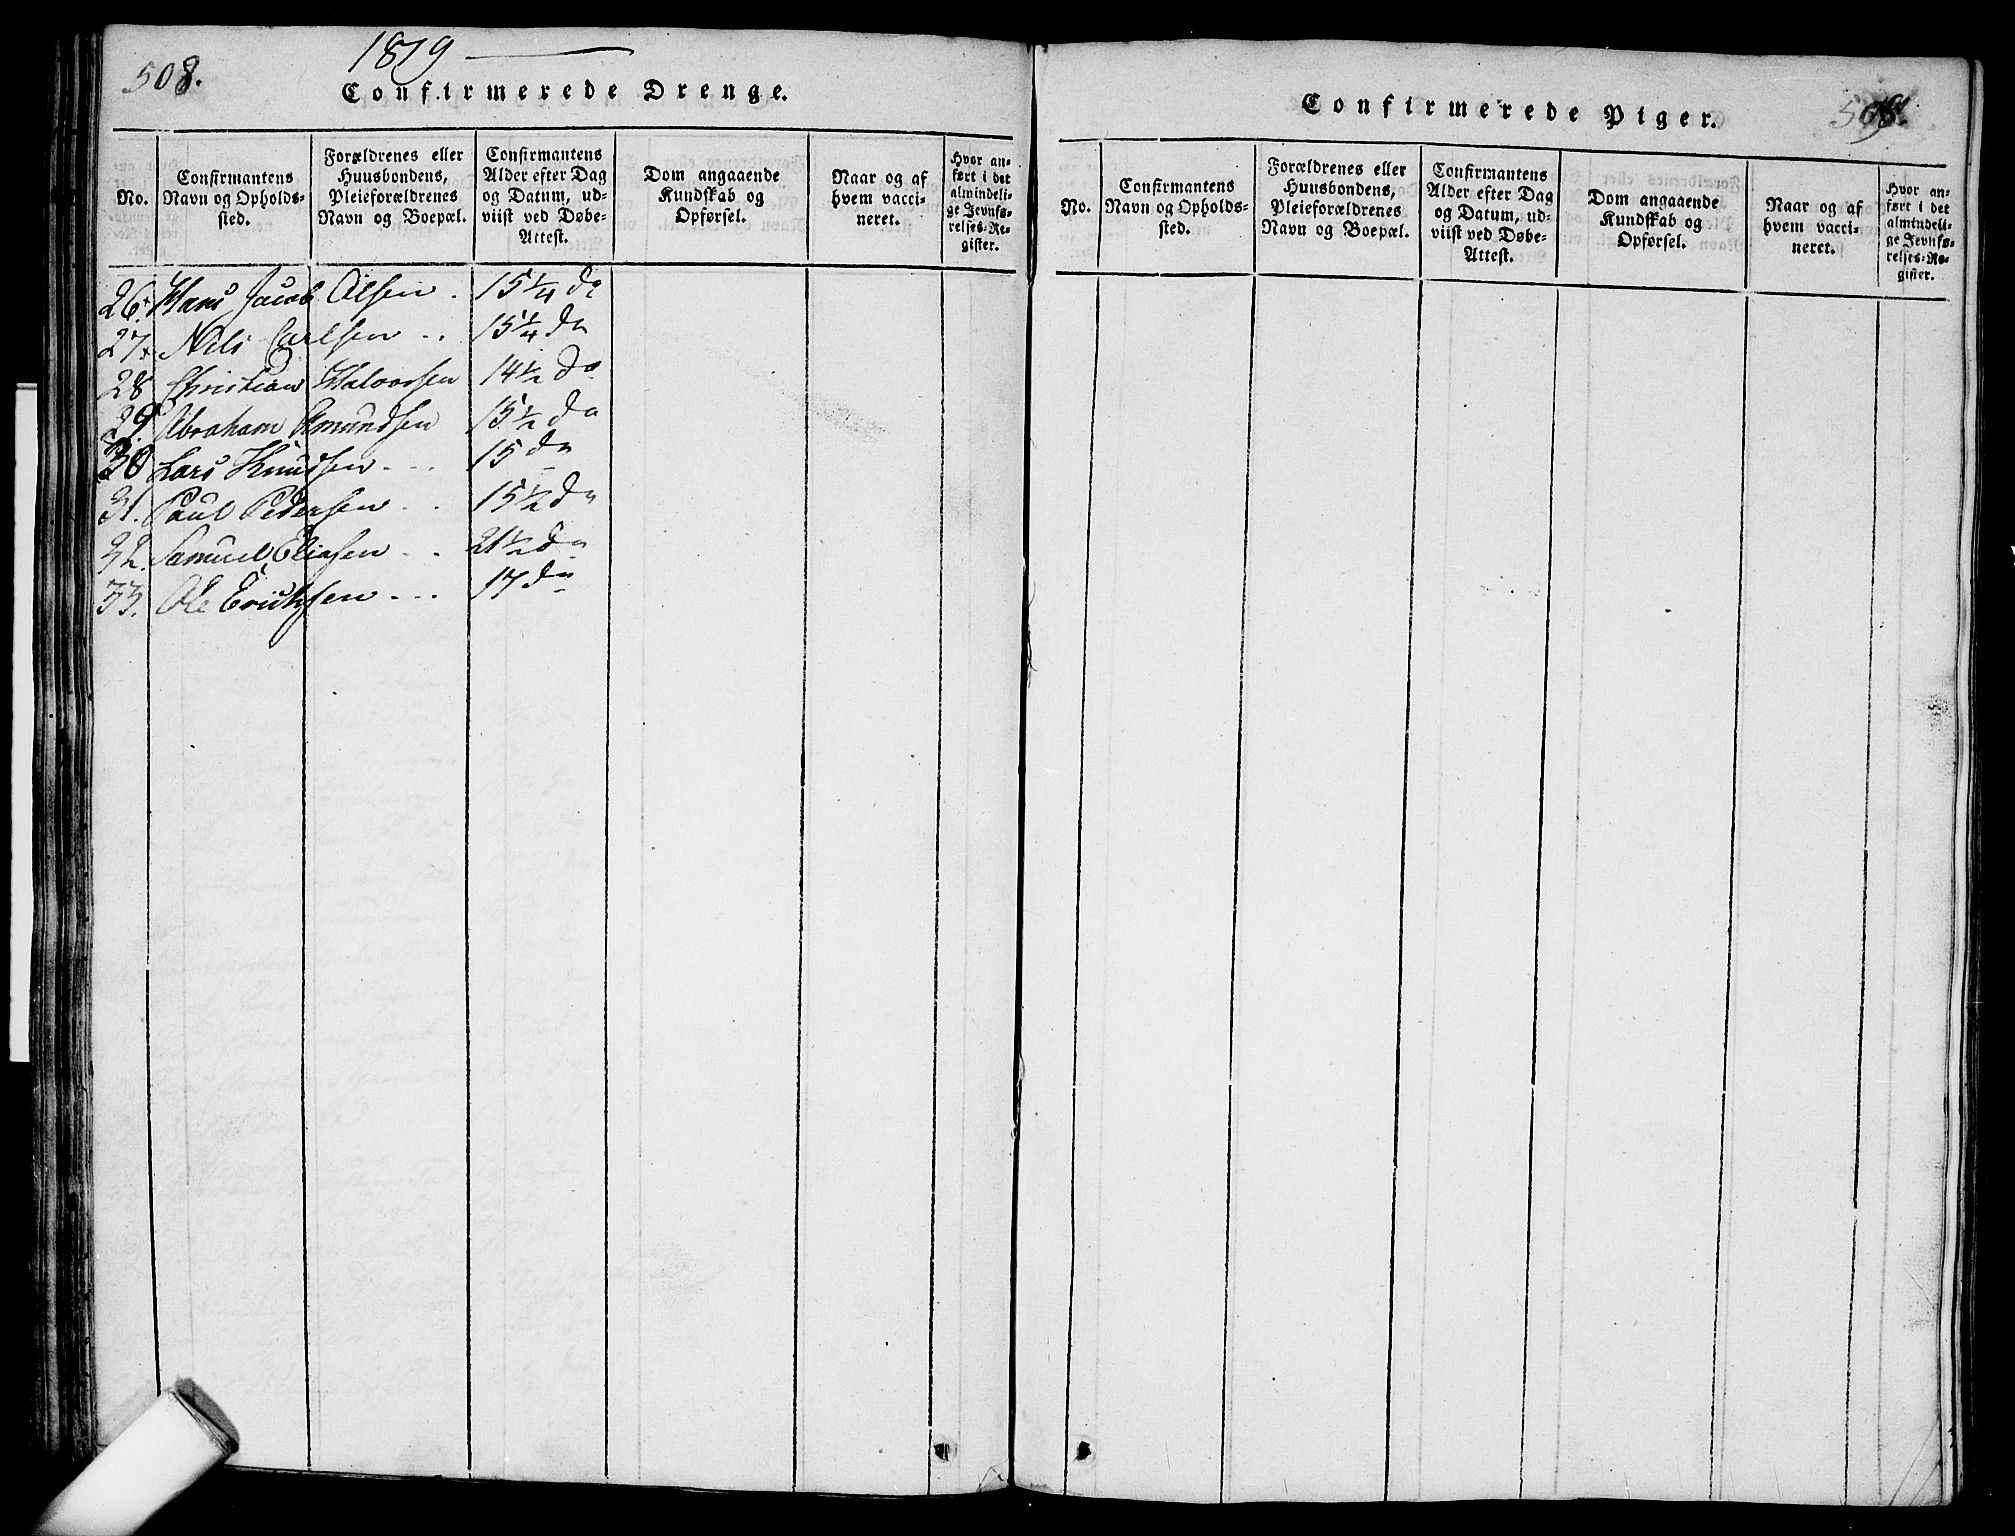 508.
1819
Confirmerede Drenge.
No.
Confirmantens
Navn og Opholds-
sted.
Forældrenes eller
Huusbondens,
Pleieforældrenes
Navn og Boepæl.
Confirmantens
Alder efter Dag
og Datum, ud-
viist ved Døbe-
Attest.
Dom angaaende
Kundskab og
Opførsel.
Naar og af
hvem vacci-
neret.
Hvor an-
ført i det
almindeli-
ge Jevnfø-
relses-Re-
gister.
26. Hans Jacob Olsen . 15 1/4 do
27. Nils Carlsen .. 15 1/4 do
28 Christian Halvorsen 14 1/2 do
29. Abraham Amundsen 15 1/2 do
30 Lars Knudsen . .. 15 do
31. Paul Pedersen . . 15 1/2 do
32. Samuel Eliasen . . 21 1/2 do
33. Ole Erichsen . . . 17 do
Confirmerede Piger.
No.
Confirmantens
Navn og Opholds-
sted.
Forældrenes eller
Huusbondens,
Pleieforældrenes
Navn og Boepæl.
Confirmantens
Alder efter Dag
og Datum, ud-
viist ved Døbe-
Attest.
Dom angaaende
Kundskab og
Opførsel.
Naar og af
hvem vacci-
neret.
Hvor an-
ført i det
almindeli-
ge Jevnfø-
relses-Re-
gister.